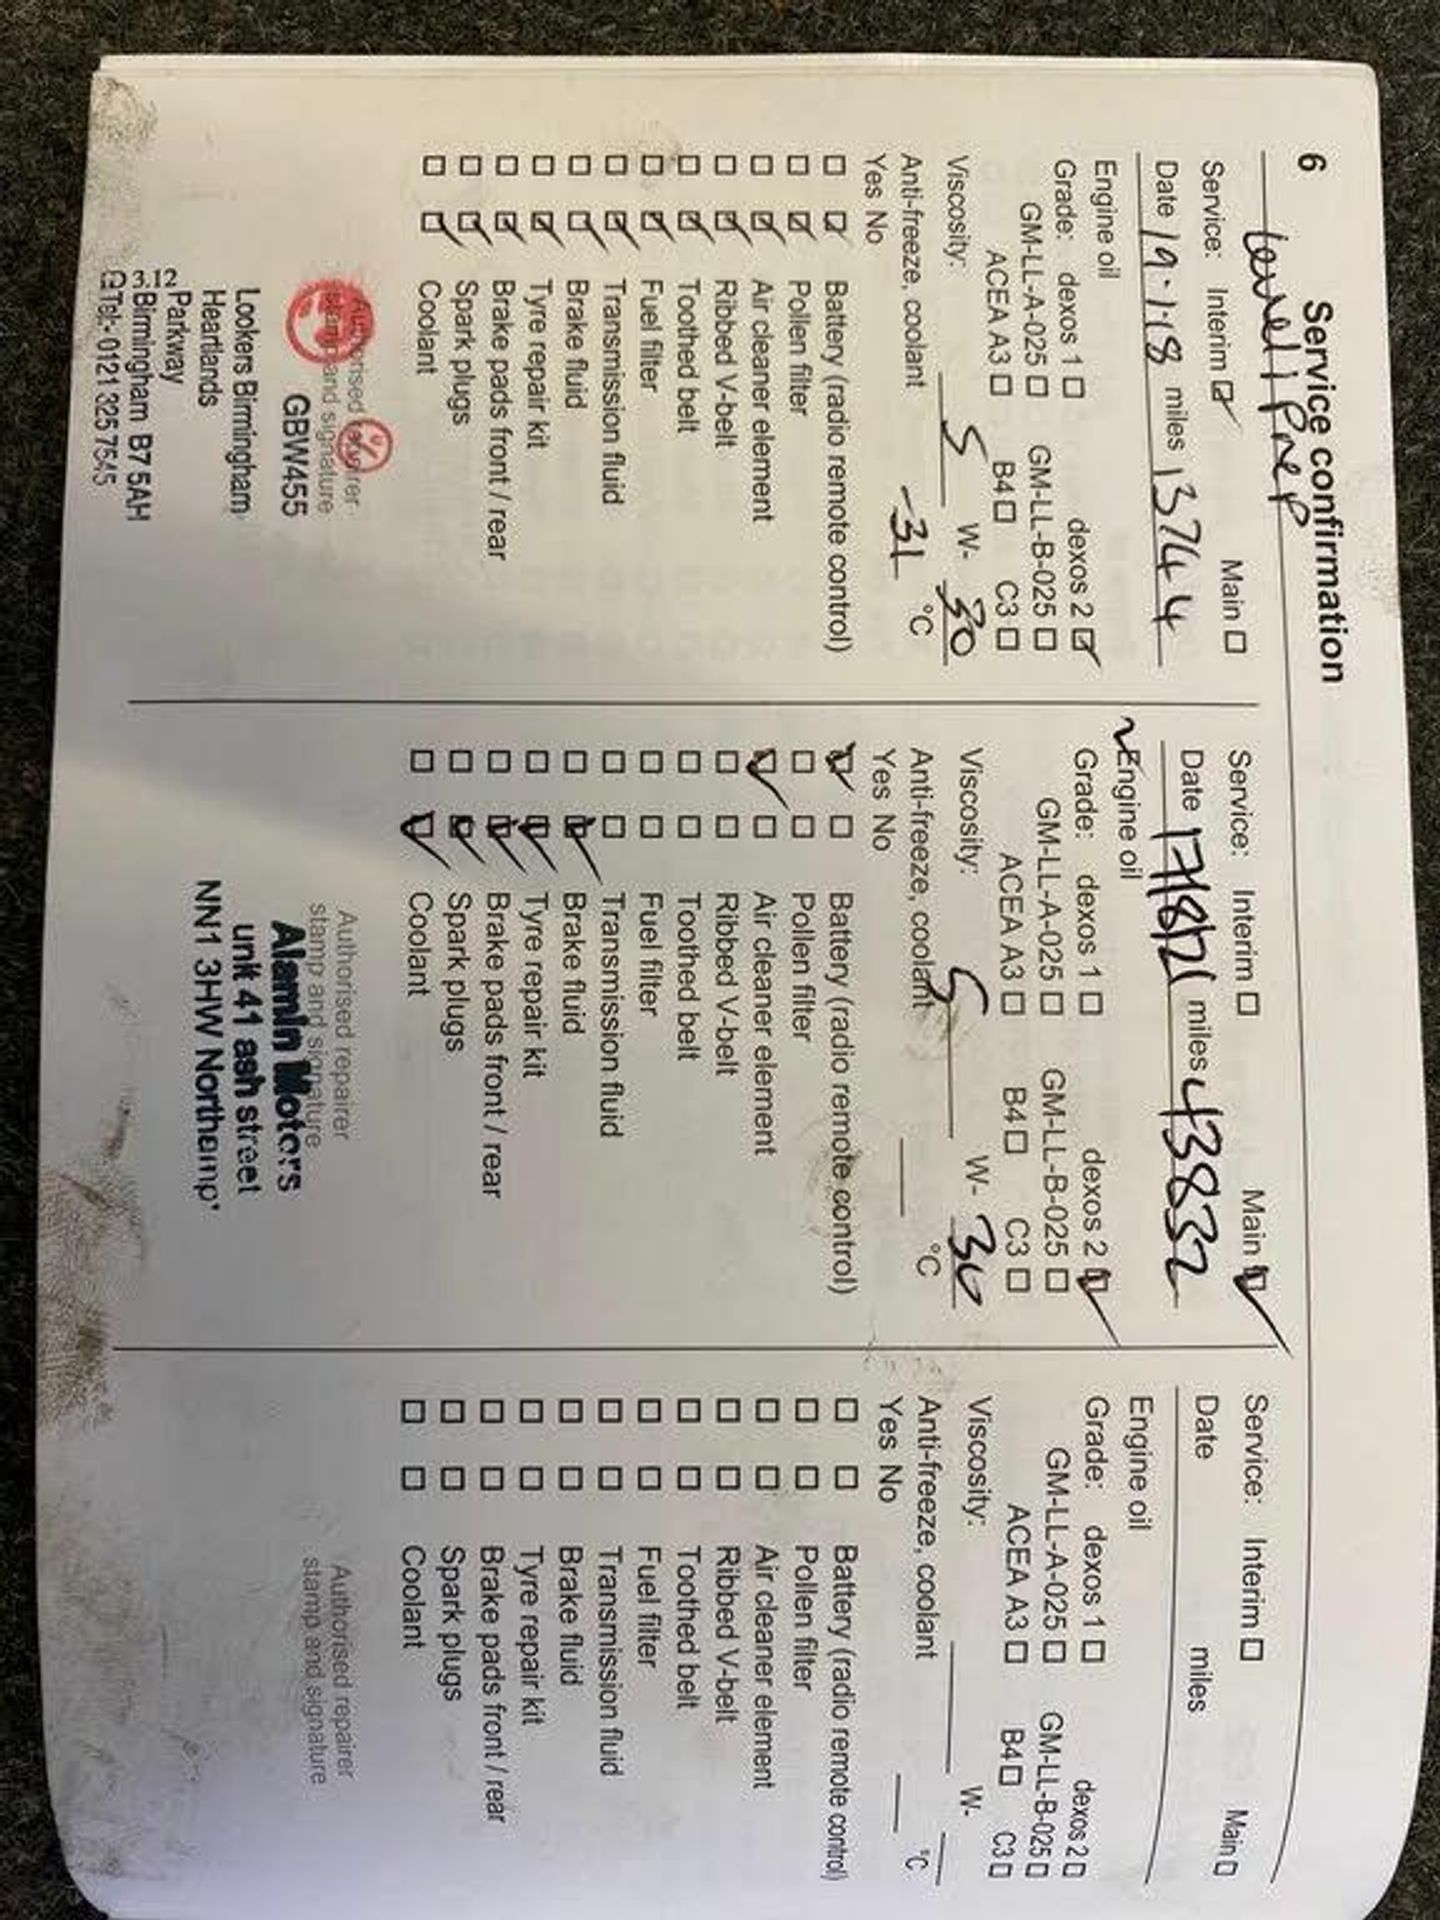 6
Service confirmation
Level 1 Prep
Service: Interim ☑ Main ☐
Date 19.1.18 miles 13744
Engine oil
Grade: dexos 1 ☐ dexos 2 ☑
GM-LL-A-025 ☐ GM-LL-B-025 ☐
ACEA A3 ☐ B4 ☐ C3 ☐
Viscosity: 5 W- 30
Anti-freeze, coolant -31 °C
Yes No
☐ ☑ Battery (radio remote control)
☐ ☑ Pollen filter
☐ ☑ Air cleaner element
☐ ☑ Ribbed V-belt
☐ ☑ Toothed belt
☐ ☑ Fuel filter
☐ ☑ Transmission fluid
☐ ☑ Brake fluid
☐ ☑ Tyre repair kit
☐ ☑ Brake pads front / rear
☐ ☑ Spark plugs
☐ ☑ Coolant
Authorised repairer
stamp and signature
GBW455
Lookers Birmingham
Heartlands
312
Parkway
Birmingham B7 5AH
Tel:- 0121 325 7545
Service: Interim ☐ Main ☑
Date 17/8/21 miles 43832
Engine oil
Grade: dexos 1 ☐ dexos 2 ☑
GM-LL-A-025 ☐ GM-LL-B-025 ☐
ACEA A3 ☐ B4 ☐ C3 ☐
Viscosity: 5 W- 30
Anti-freeze, coolant °C
Yes No
☑ ☐ Battery (radio remote control)
☐ ☐ Pollen filter
☑ ☐ Air cleaner element
☐ ☐ Ribbed V-belt
☐ ☐ Toothed belt
☐ ☐ Fuel filter
☐ ☐ Transmission fluid
☐ ☑ Brake fluid
☐ ☑ Tyre repair kit
☐ ☑ Brake pads front / rear
☐ ☑ Spark plugs
☐ ☑ Coolant
Authorised repairer
stamp and signature
Alamin Motors
unit 41 ash street
NN1 3HW Northamp'
Service: Interim ☐ Main ☐
Date miles
Engine oil
Grade: dexos 1 ☐ dexos 2 ☐
GM-LL-A-025 ☐ GM-LL-B-025 ☐
ACEA A3 ☐ B4 ☐ C3 ☐
Viscosity: W-
Anti-freeze, coolant °C
Yes No
☐ ☐ Battery (radio remote control)
☐ ☐ Pollen filter
☐ ☐ Air cleaner element
☐ ☐ Ribbed V-belt
☐ ☐ Toothed belt
☐ ☐ Fuel filter
☐ ☐ Transmission fluid
☐ ☐ Brake fluid
☐ ☐ Tyre repair kit
☐ ☐ Brake pads front / rear
☐ ☐ Spark plugs
☐ ☐ Coolant
Authorised repairer
stamp and signature